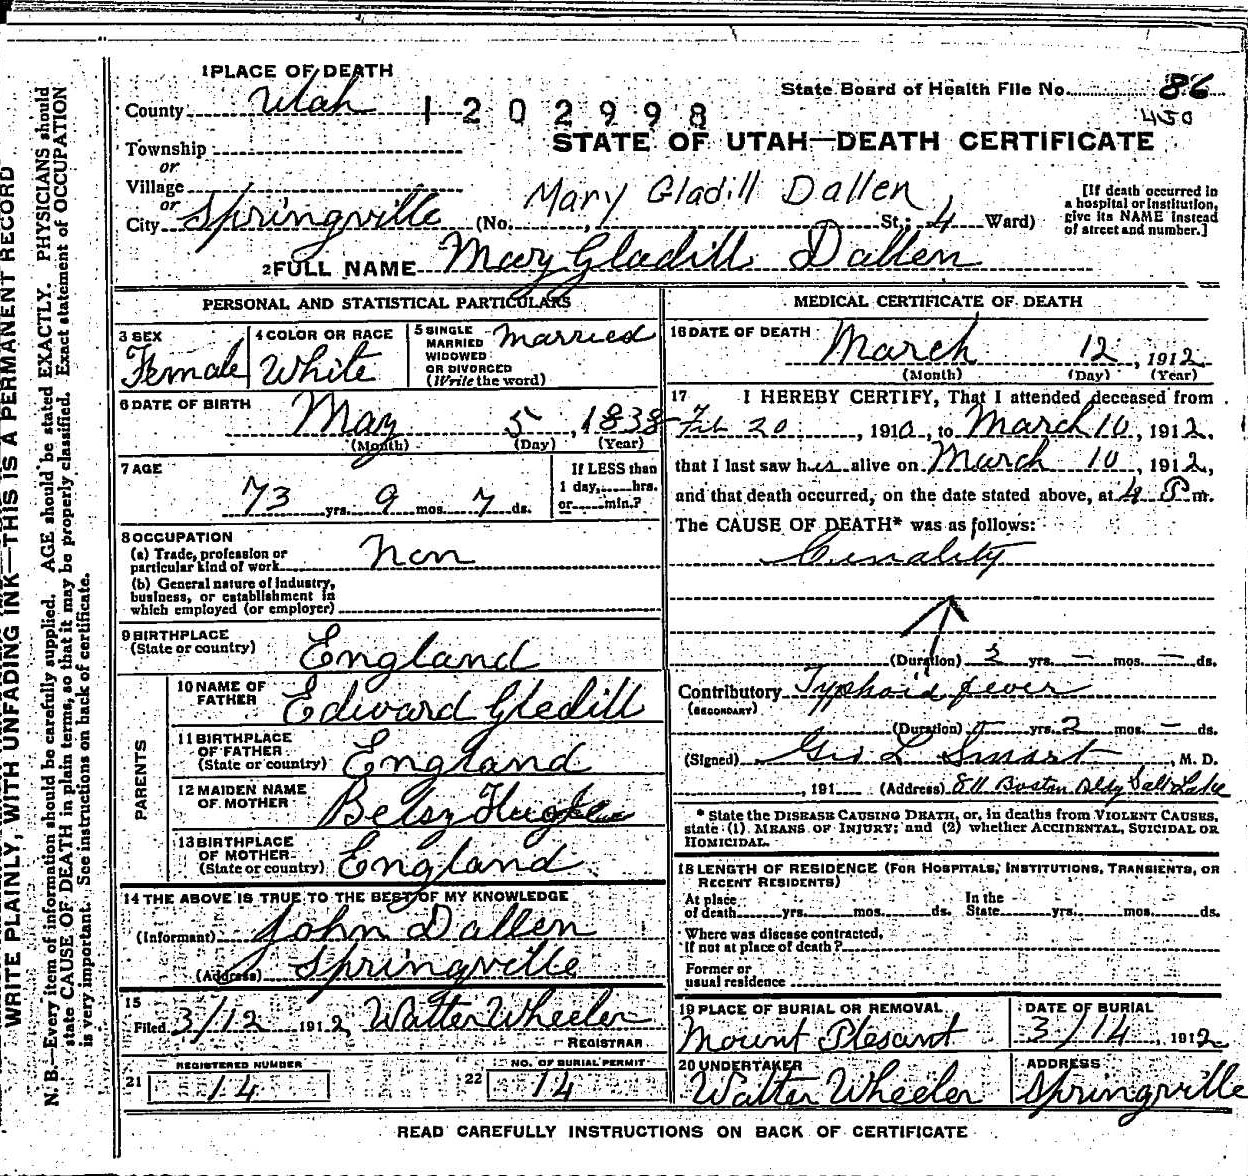 WRITE PLAINLY, WITH UNFADING INK—THIS IS A PERMANENT RECORD
N. B.—Every item of information should be carefully supplied. AGE should be stated EXACTLY. PHYSICIANS should
state CAUSE OF DEATH in plain terms, so that it may be properly classified. Exact statement of OCCUPATION
is very important. See instructions on back of certificate.
1 PLACE OF DEATH
County Utah
1 2 0 2 9 9 8
State Board of Health File No. 86
450
STATE OF UTAH—DEATH CERTIFICATE
Township
or
Village
or
City Springville (No. , St.; 4 Ward)
Mary Gladill Dallen
[If death occurred in
a hospital or institution,
give its NAME instead
of street and number.]
2 FULL NAME Mary Gladill Dallen
PERSONAL AND STATISTICAL PARTICULARS
3 SEX
Female
4 COLOR OR RACE
White
5 SINGLE
MARRIED
WIDOWED
OR DIVORCED
(Write the word)
Married
6 DATE OF BIRTH
May 5, 1838
(Month) (Day) (Year)
7 AGE
73 yrs. 9 mos. 7 ds.
If LESS than
1 day, hrs.
or min.?
8 OCCUPATION
(a) Trade, profession or
particular kind of work Non
(b) General nature of industry,
business, or establishment in
which employed (or employer)
9 BIRTHPLACE
(State or country) England
PARENTS
10 NAME OF
FATHER Edward Gledill
11 BIRTHPLACE
OF FATHER
(State or country) England
12 MAIDEN NAME
OF MOTHER Betsy
13 BIRTHPLACE
OF MOTHER
(State or country) England
14 THE ABOVE IS TRUE TO THE BEST OF MY KNOWLEDGE
(Informant) John Dallen
(Address) Springville
15
Filed 3/12 1912, Walter Wheeler
REGISTRAR
REGISTERED NUMBER
21 14
NO. OF BURIAL PERMIT
22 14
MEDICAL CERTIFICATE OF DEATH
16 DATE OF DEATH
March 12, 1912
(Month) (Day) (Year)
17 I HEREBY CERTIFY, That I attended deceased from
Feb 20, 1910, to March 10, 1912,
that I last saw her alive on March 10, 1912,
and that death occurred, on the date stated above, at 4 P m.
The CAUSE OF DEATH* was as follows:
(Duration) 2 yrs. — mos. — ds.
Contributory Typhoid fever
(SECONDARY)
(Duration) yrs. 2 mos. — ds.
(Signed) Geo L Smart, M. D.
, 191 (Address) 811 Boston Bldg Salt Lake
* State the DISEASE CAUSING DEATH, or, in deaths from VIOLENT CAUSES,
state (1) MEANS OF INJURY; and (2) whether ACCIDENTAL, SUICIDAL OR
HOMICIDAL.
18 LENGTH OF RESIDENCE (FOR HOSPITALS, INSTITUTIONS, TRANSIENTS, OR
RECENT RESIDENTS)
At place
of death yrs. mos. ds.
In the
State yrs. mos. ds.
Where was disease contracted,
if not at place of death?
Former or
usual residence
19 PLACE OF BURIAL OR REMOVAL
Mount Plesant
DATE OF BURIAL
3/14, 1912
20 UNDERTAKER
Walter Wheeler
ADDRESS
Springville
READ CAREFULLY INSTRUCTIONS ON BACK OF CERTIFICATE